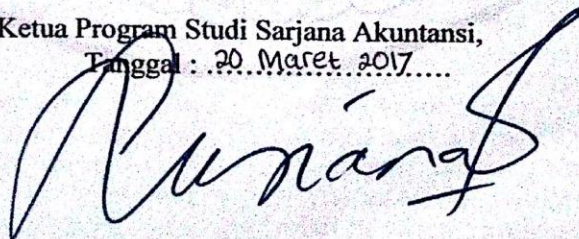 Ketua Program Studi Sarjana Akuntansi,
Tanggal : 20 Maret 2017